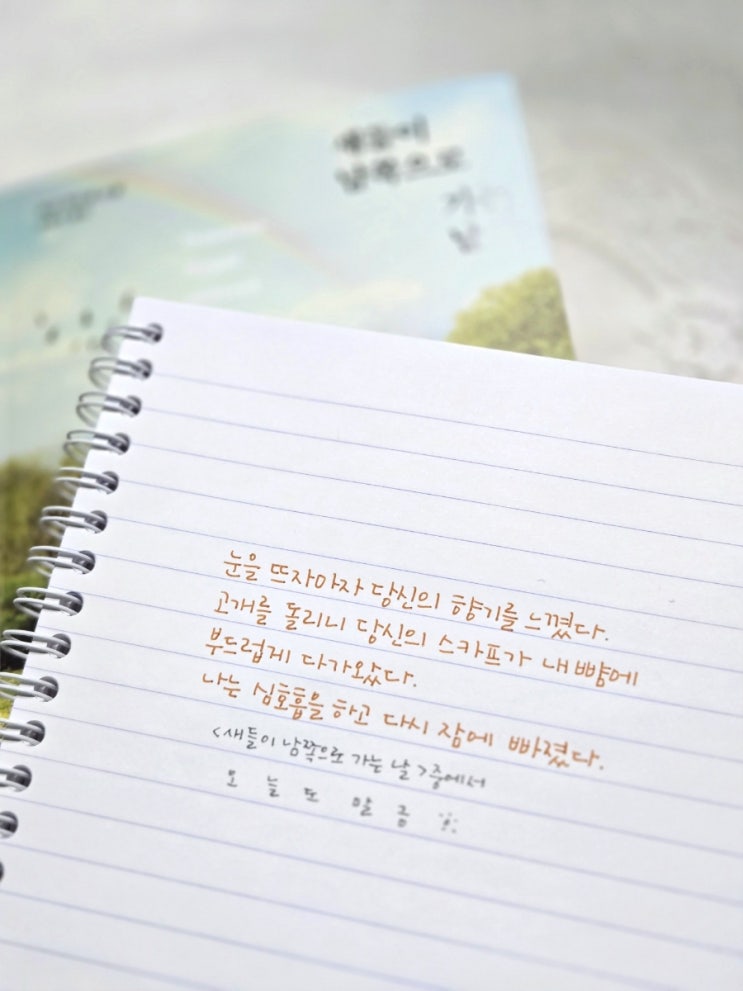 새들이
남쪽으로
가는
날
눈을 뜨자마자 당신의 향기를 느꼈다.
고개를 돌리니 당신의 스카프가 내 뺨에
부드럽게 다가왔다.
나는 심호흡을 하고 다시 잠에 빠졌다.
<새들이 남쪽으로 가는 날>중에서
오늘도 말금